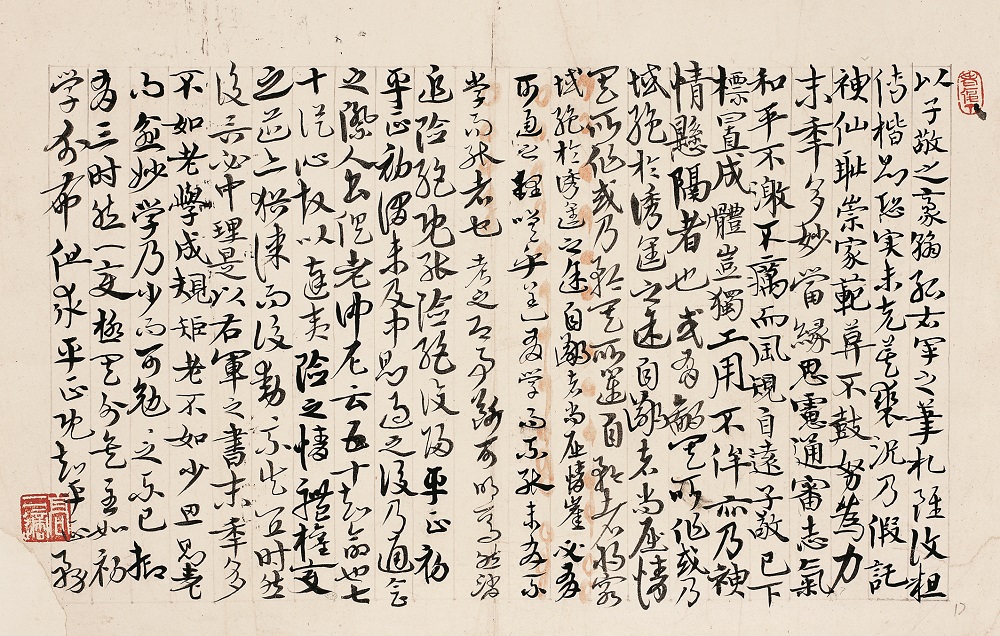 以子敬之豪翰紹右軍之筆札雖復粗
傳楷則恐實未克箕裘況乃假託
神仙恥崇家範莫不鼓努為力
末年多妙當緣思慮通審志氣
和平不激不厲而風規自遠子敬已下
標置成體豈獨工用不侔亦乃神
情懸隔者也或有鄙其所作或乃
域絕於誘進之途自鄙者尚屈情
其所作或乃矜其所運自矜者將窮
域絕於誘進之途自鄙者尚屈情崖必有
可通之理嗟乎盖有學而不能未有不
學而能者也考之即事斷可明焉然消
追險絕既能險絕復歸平正初
平正初謂未及中則過之後乃通會
之際人書俱老仲尼云五十知命也七
十從心故以達夷險之情體權變
之道亦猶謀而後動不失宜時然
後言必中理是以右軍之書末年多
不如老學成規矩老不如少思則老
而愈妙學乃少而可勉之不已抑
有三时然一變極其分矣至如初
学分布但求平正既知平正務